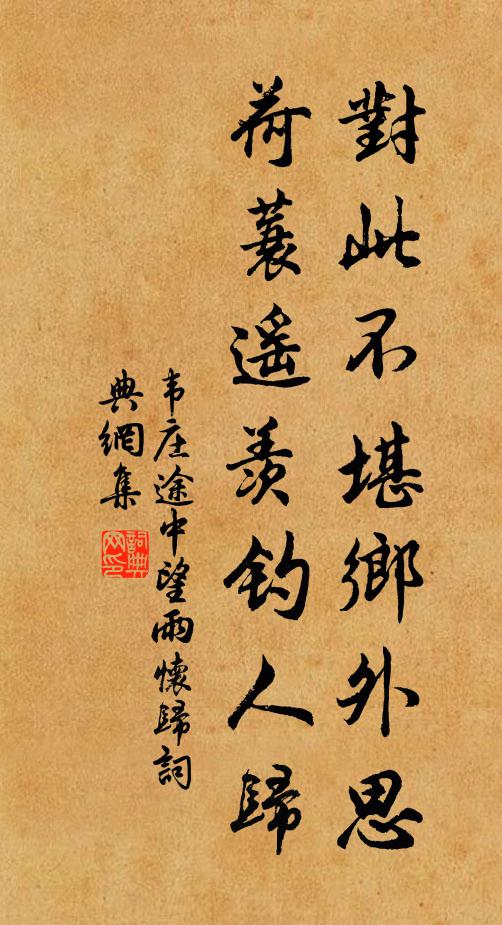 對此不堪鄉外思
荷蓑遥羨釣人歸
韦庄途中望雨懷歸詞
典網集
詞典
网印